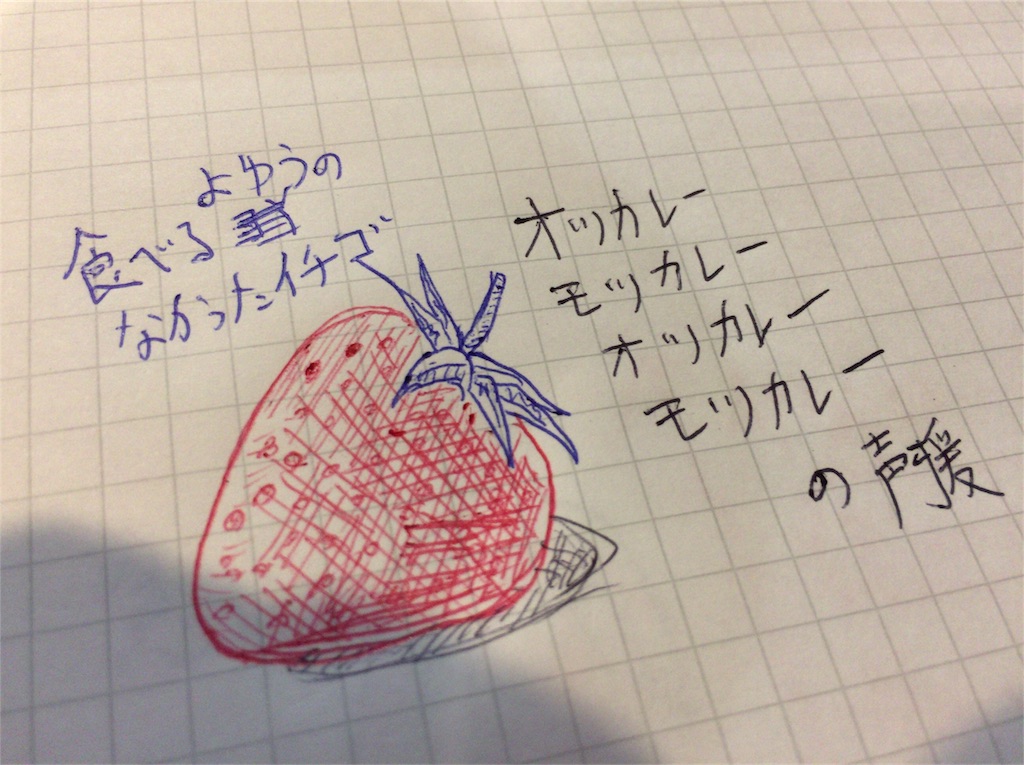 よゆうの
食べる
なかったイチゴ
オッカレー
モツカレー
オッカレー
モツカレー
の声援